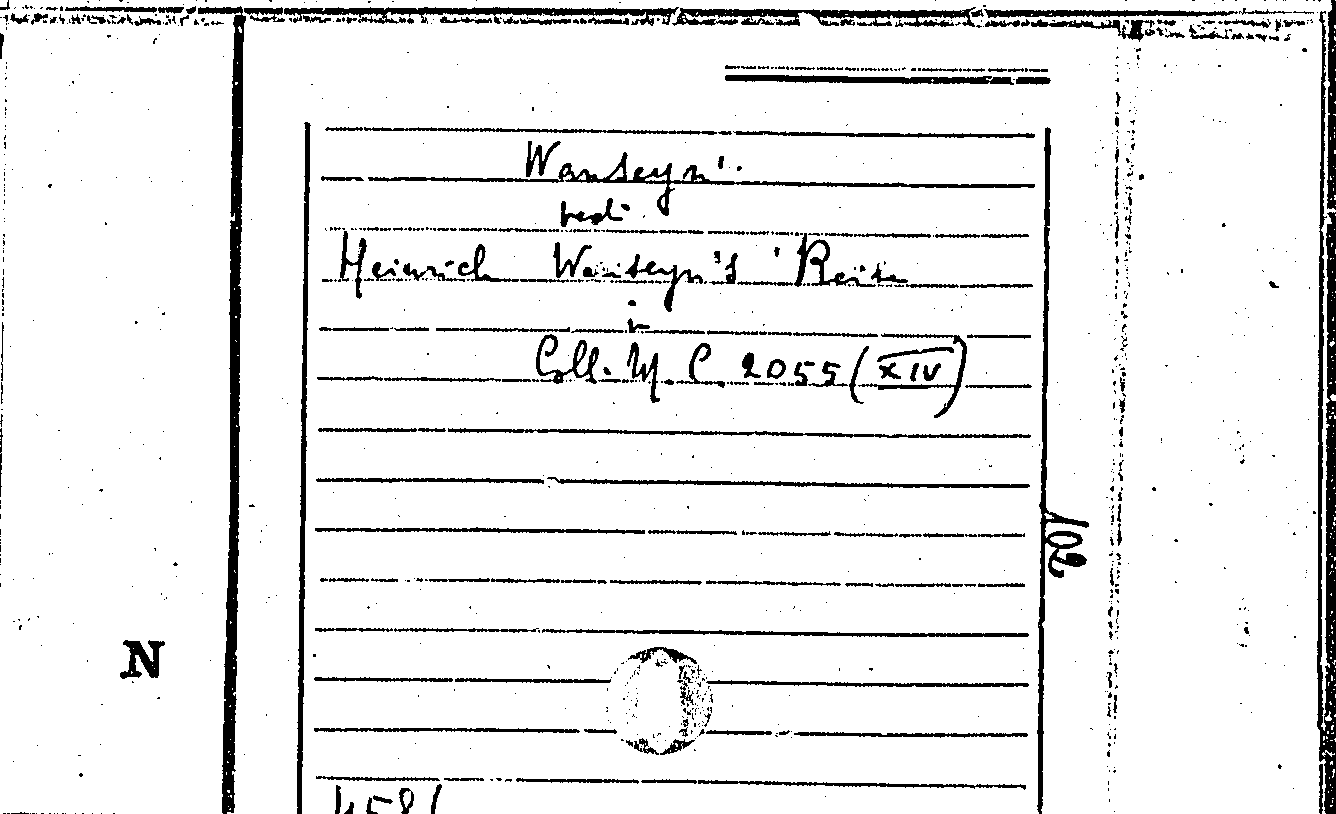 Wanseyn'.
vedi
Heinrich Wanseyn's Reise
in
Coll. M. C. 2055 (XIV)
102
N